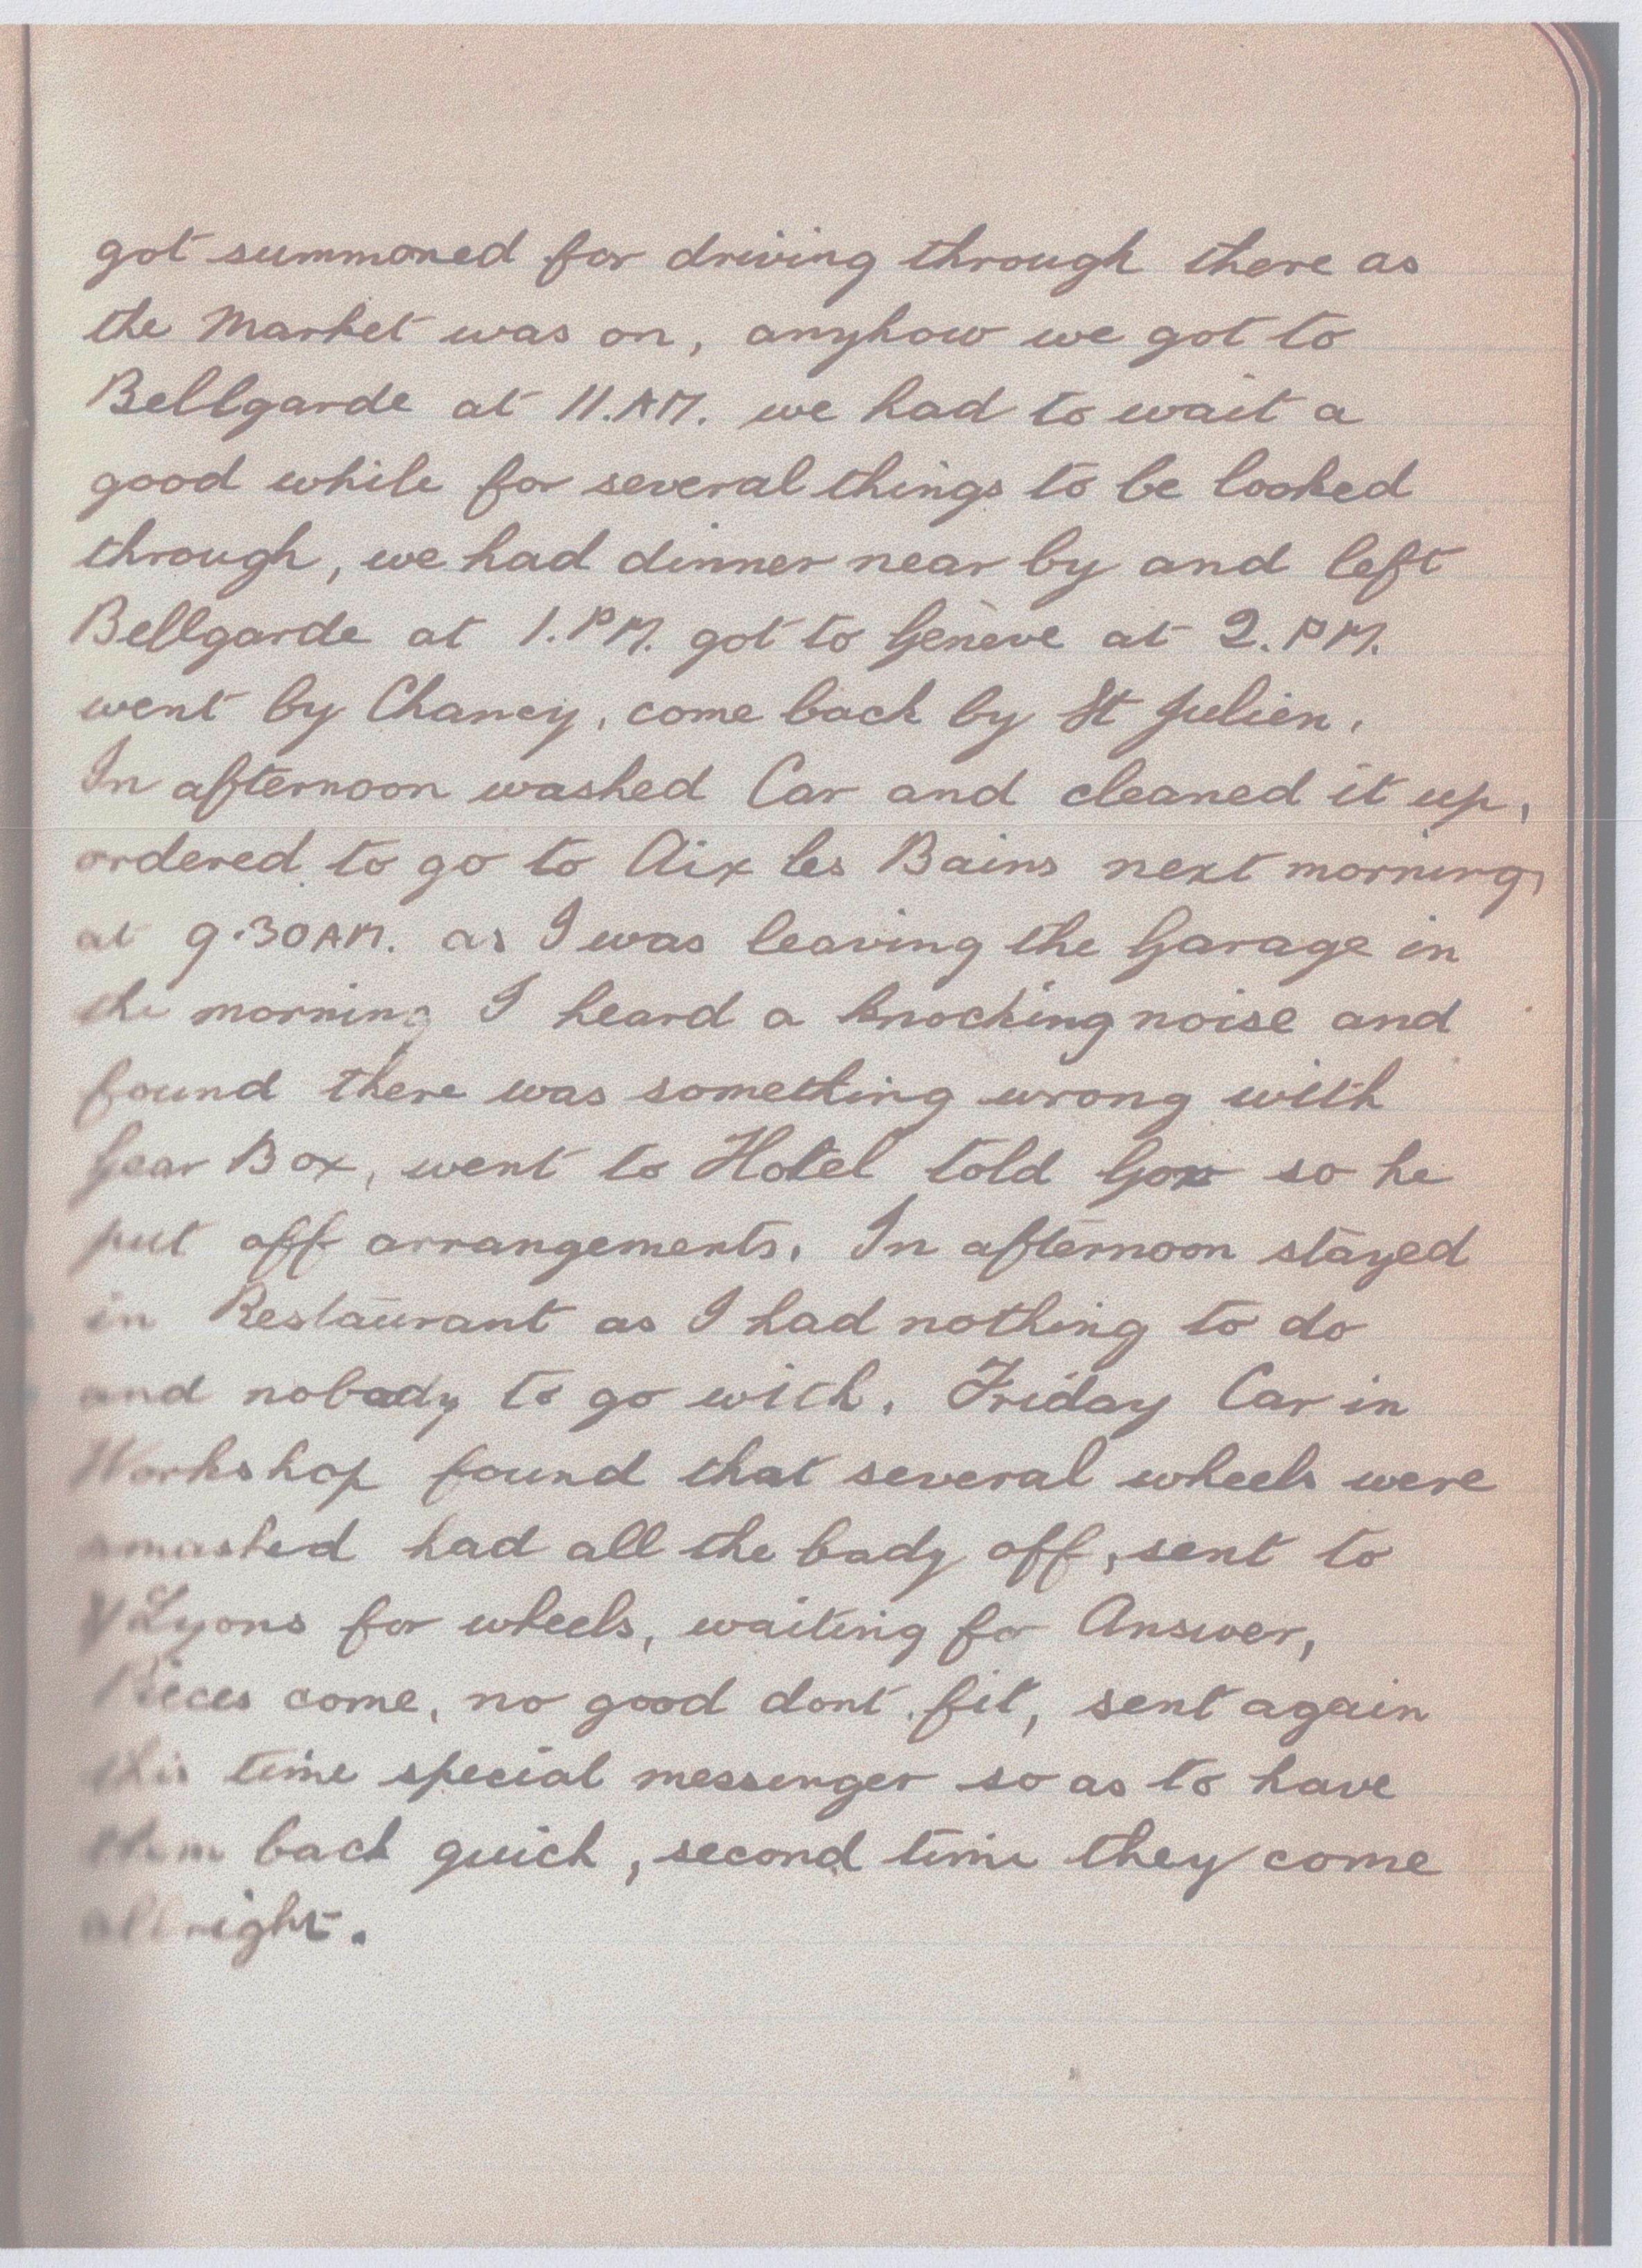 got summoned for driving through there as
the Market was on, anyhow we got to
Bellgarde at 11.AM. we had to wait a
good while for several things to be looked
through, we had dinner near by and left
Bellgarde at 1.PM. got to Genève at 2.PM.
went by Chancy, come back by St Julien.
In afternoon washed Car and cleaned it up,
ordered to go to Aix les Bains next morning,
at 9.30AM. as I was leaving the Garage in
the morning I heard a knocking noise and
found there was something wrong with
Gear Box, went to Hotel told so he
put off arrangements. In afternoon stayed
in Restaurant as I had nothing to do
and nobody to go with. Friday Car in
Workshop found that several wheels were
smashed had all the body off, sent to
Lyons for wheels, waiting for Answer,
Pieces come, no good dont fit, sent again
this time special messenger so as to have
them back quick, second time they come
all right.